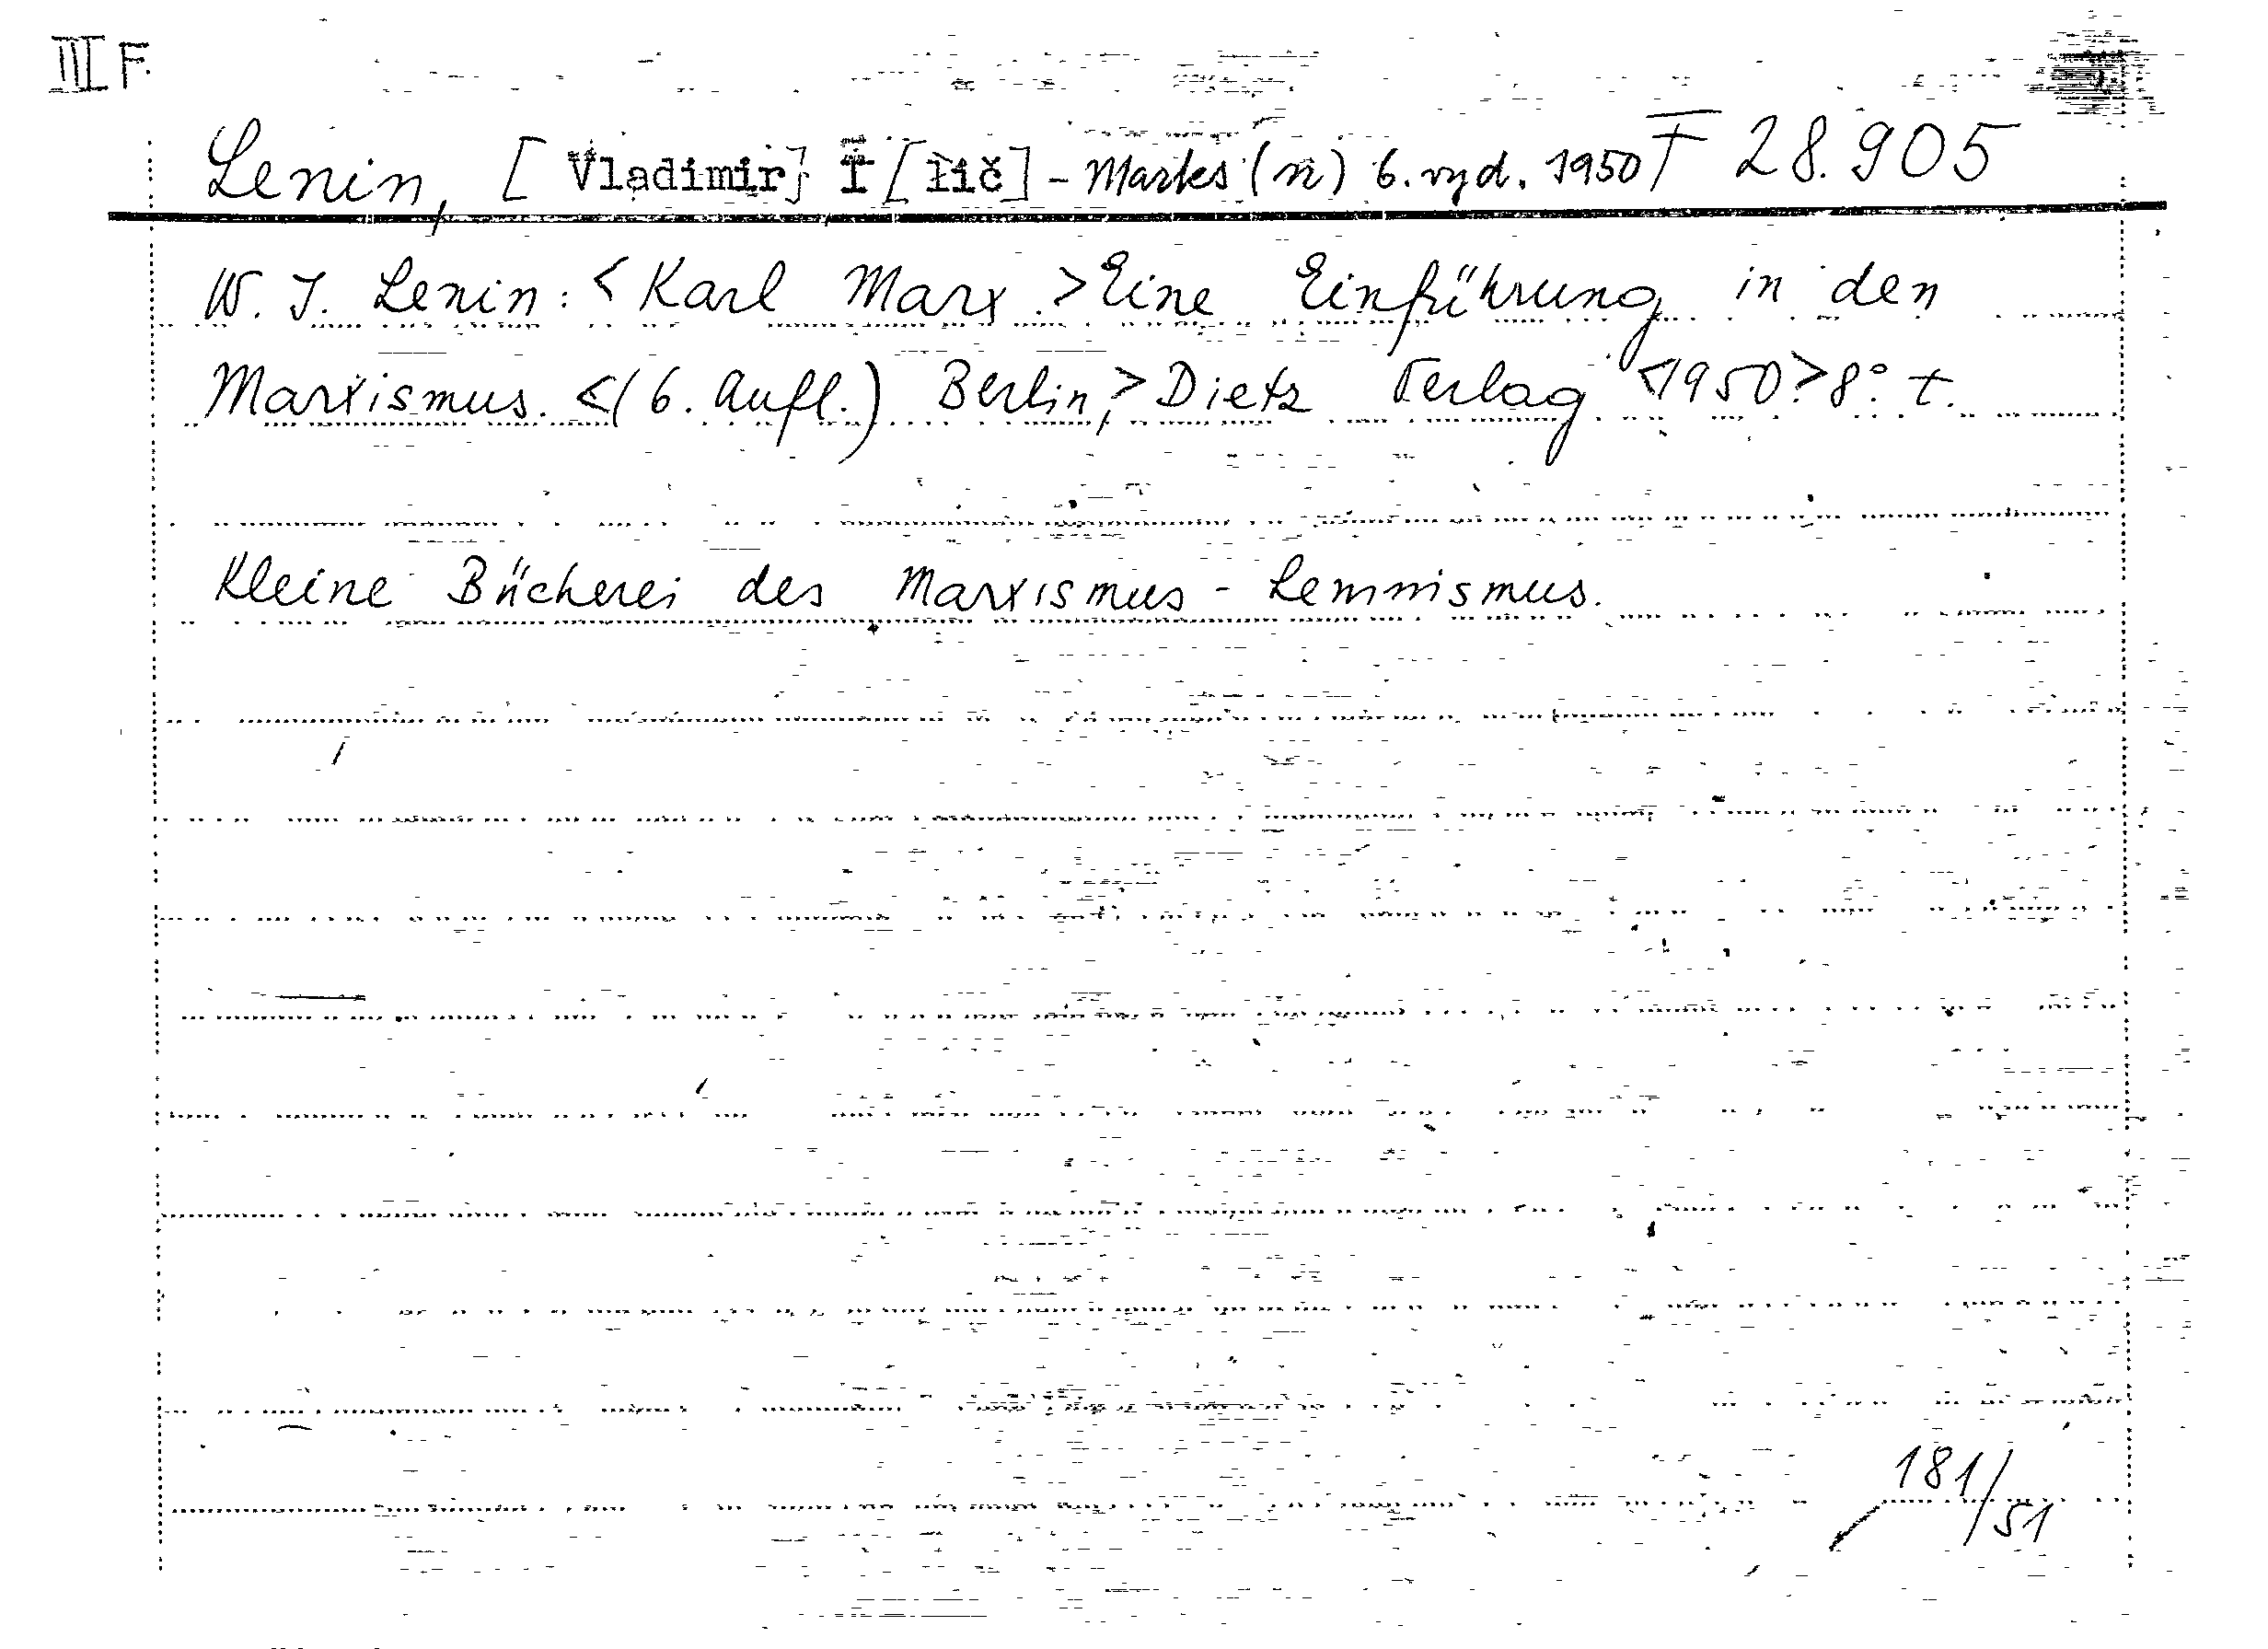 III F.
Lenin, [Vladimir] I[lič] - Marks (n) 6. vyd. 1950 F 28.905
W. I. Lenin: <Karl Marx.> Eine Einführung in den
Marxismus. <(6. Aufl.) Berlin,> Dietz Verlag <1950> 8°. t.
Kleine Bücherei des Marxismus - Leninismus.
181/51